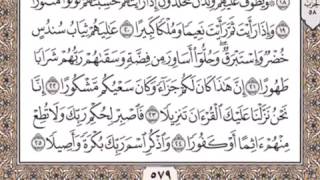 الحزب
٥٨
١٨ ۞ وَيَطُوفُ عَلَيْهِمْ وِلْدَٰنٌ مُّخَلَّدُونَ إِذَا رَأَيْتَهُمْ حَسِبْتَهُمْ لُؤْلُؤًا مَّنثُورًا
١٩ وَإِذَا رَأَيْتَ ثَمَّ رَأَيْتَ نَعِيمًا وَمُلْكًا كَبِيرًا ٢٠ عَٰلِيَهُمْ ثِيَابُ سُندُسٍ
خُضْرٌ وَإِسْتَبْرَقٌ ۖ وَحُلُّوٓا۟ أَسَاوِرَ مِن فِضَّةٍ وَسَقَىٰهُمْ رَبُّهُمْ شَرَابًا
طَهُورًا ٢١ إِنَّ هَٰذَا كَانَ لَكُمْ جَزَآءً وَكَانَ سَعْيُكُم مَّشْكُورًا ٢٢ إِنَّا
نَحْنُ نَزَّلْنَا عَلَيْكَ ٱلْقُرْءَانَ تَنزِيلًا ٢٣ فَٱصْبِرْ لِحُكْمِ رَبِّكَ وَلَا تُطِعْ
مِنْهُمْ ءَاثِمًا أَوْ كَفُورًا ٢٤ وَٱذْكُرِ ٱسْمَ رَبِّكَ بُكْرَةً وَأَصِيلًا ٢٥
٥٧٩